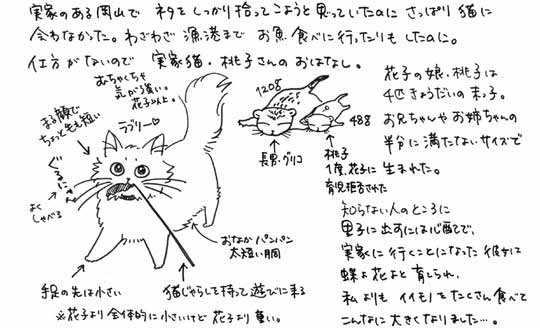 実家のある岡山で ネタをしっかり拾ってこようと思っていたのに さっぱり猫に
会わなかった。わざわざ漁港まで お魚食べに行ったりもしたのに。
仕方がないので 実家猫・桃子さんのおはなし。
むちゃくちゃ
気が強い。
花子以上。
まる顔で
ちょっと毛も短い
ラブリー♡
ぐるにゃん
よく
しゃべる
おなかパンパン
太短い胴
手足の先は小さい
猫じゃらしを持って遊びに来る
※花子より全体的に小さいけど 花子より重い。
120g
48g
長男・グリコ
桃子
1度、花子に
育児拒否された
花子の娘、桃子は
4匹きょうだいの末っ子。
お兄ちゃんやお姉ちゃんの
半分に満たないサイズで
生まれた。
知らない人のところに
里子に出すには心配で、
実家に行くことになった彼女は
蝶よ花よと育てられ、
私よりもイイモノをたくさん食べて
こんなに大きくなりました…。